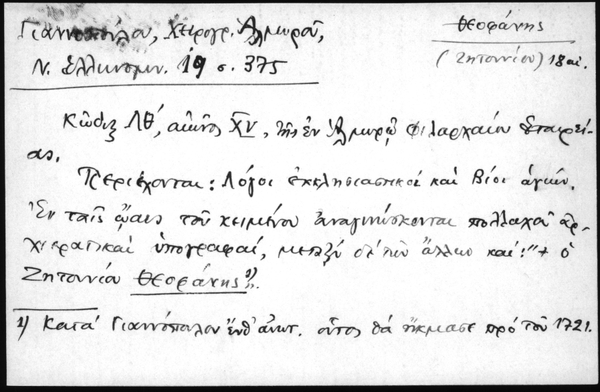 Γιαννοπούλου, Χειρογρ. Ἁλμυροῦ,
Θεοφάνης
Ν. Ἑλληνομν. 19 σ. 375
(Ζητουνίου) 18 αἰ.
Κῶδιξ ΛΘ', αἰῶνος XV, τῆς ἐν Ἁλμυρῷ Φιλαρχαίου Ἑταιρεί-
ας.
Περιέχονται: Λόγοι ἐκκλησιαστικοί καί Βίοι ἁγίων.
Ἐν ταῖς ὤαις τοῦ κειμένου ἀναγινώσκονται πολλαχοῦ ἀρ-
χιερατικαί ὑπογραφαί, μεταξύ δέ τῶν ἄλλων καί: "+ ὁ
Ζητουνίου Θεοφάνης" 1).
1) Κατά Γιαννόπουλον ἔνθ' ἀνωτ. οὗτος θά ἤκμασε πρό τοῦ 1721.